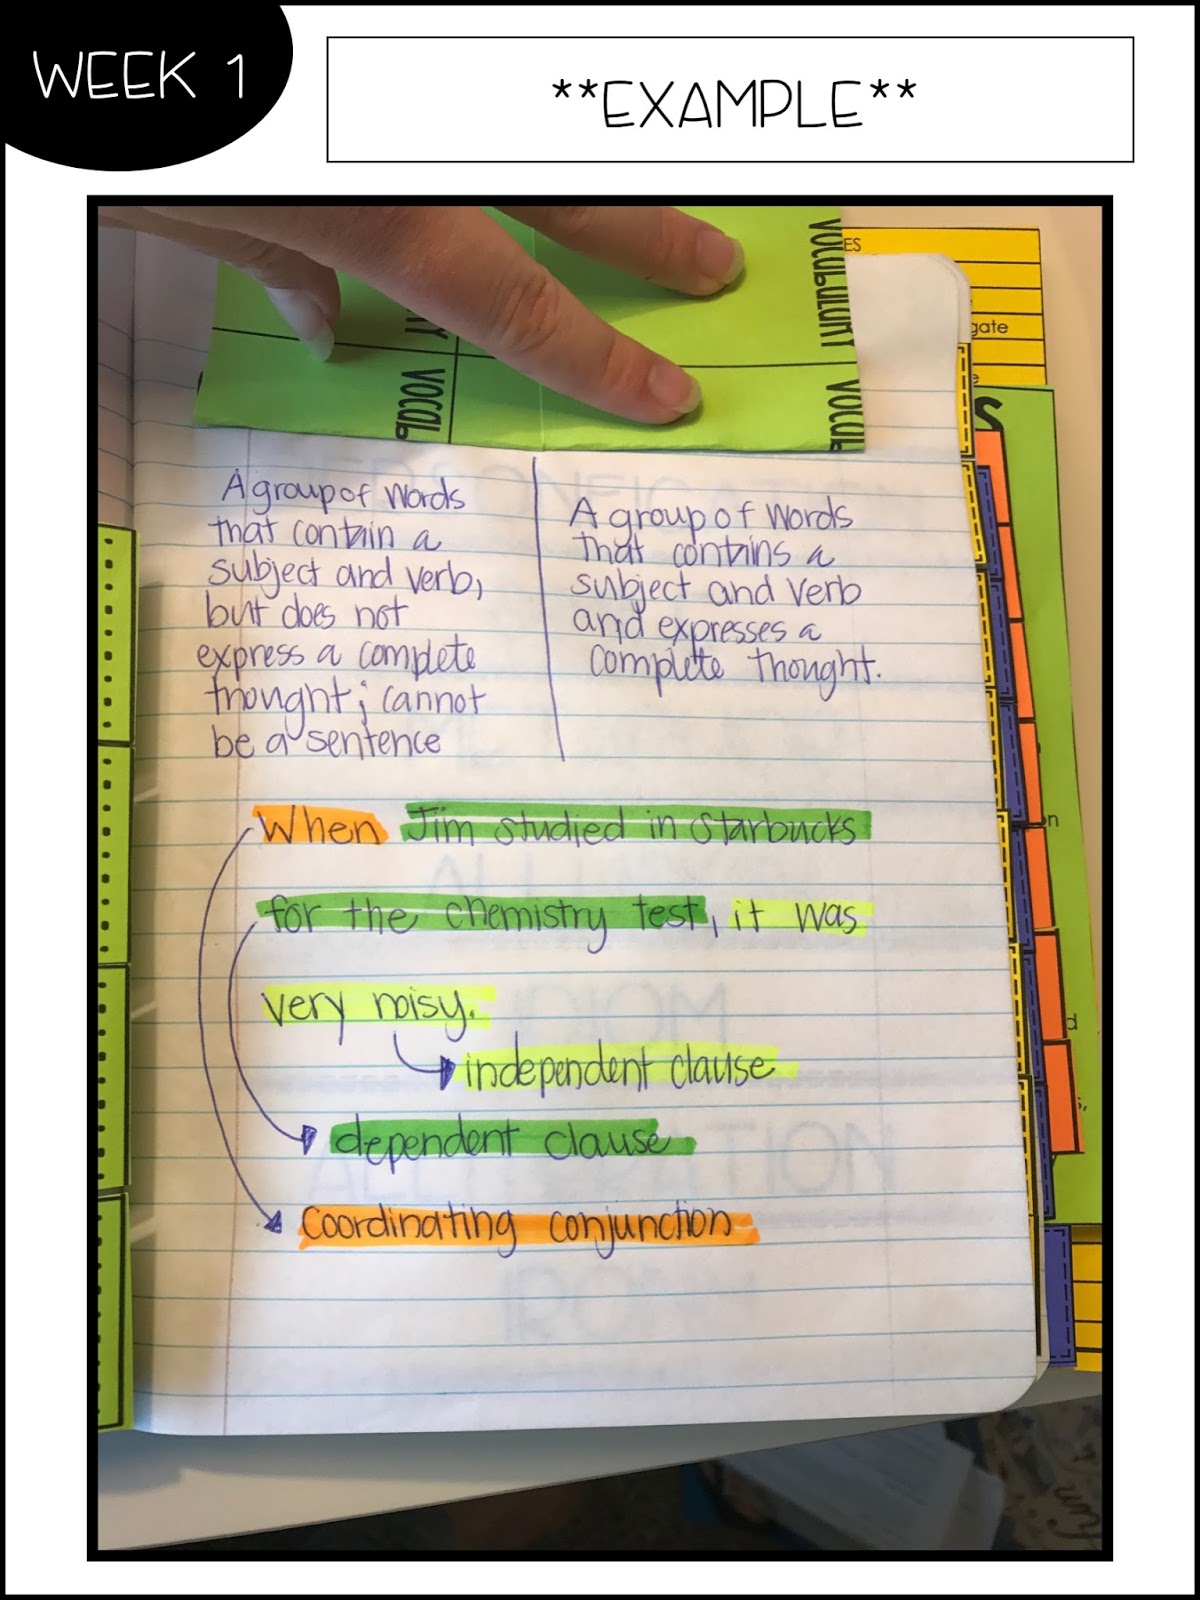 WEEK 1
**EXAMPLE**
VOCABULARY
ES
VOCAB
VOCAB
gate
A group of words
that contain a
subject and verb,
but does not
express a complete
thought; cannot
be a sentence
A group of words
that contains a
subject and verb
and expresses a
complete thought.
When Jim studied in Starbucks
for the chemistry test, it was
very noisy.
independent clause
dependent clause
Coordinating conjunction
IDIOM
ALLITERATION